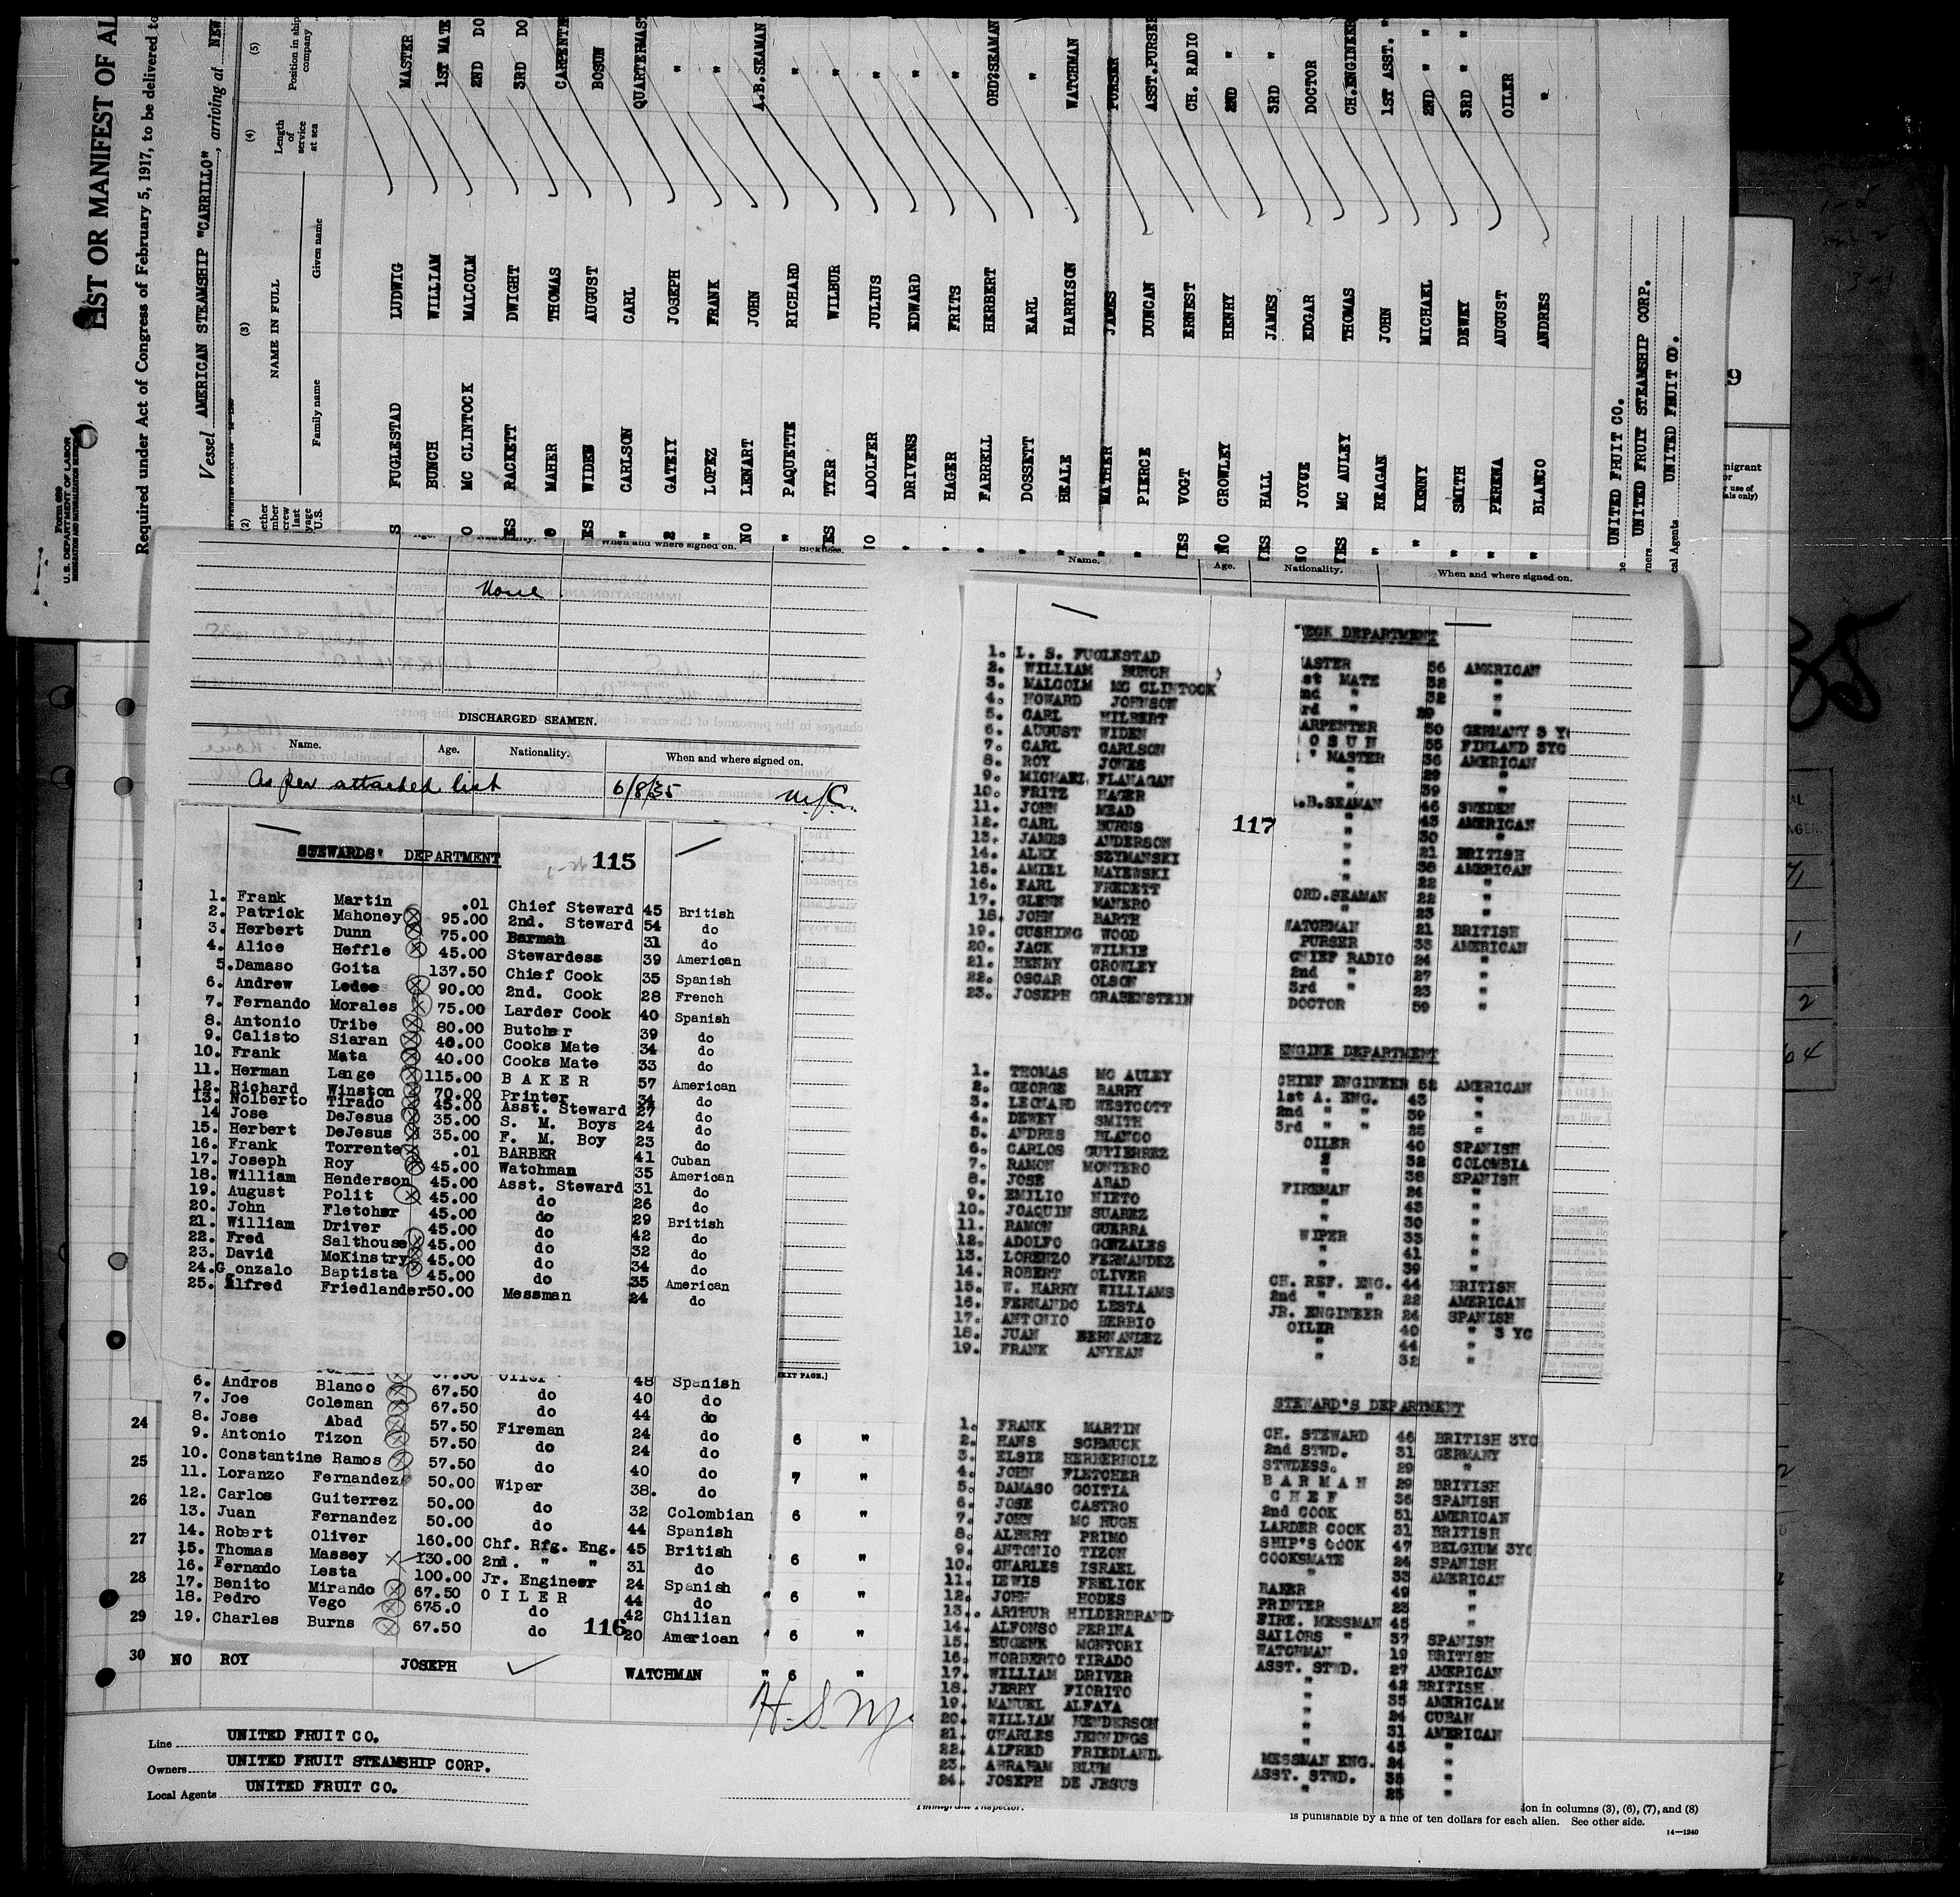 LIST OR MANIFEST OF AL
Required under Act of Congress of February 5, 1917, to be delivered to
Vessel AMERICAN STEAMSHIP "CARRILLO", arriving at NEW
Form 680
U. S. DEPARTMENT OF LABOR
IMMIGRATION AND NATURALIZATION SERVICE
(2) (3) (4) (5)
NAME IN FULL
Family name Given name
Length of service at sea
Position in ship company
FUGLESTAD LUDWIG MASTER
BUNCH WILLIAM 1ST MATE
MC CLINTOCK MALCOLM 2ND DO
RACKETT DWIGHT 3RD DO
MAHER THOMAS CARPENTE
WIDEN AUGUST BOSUN
CARLSON CARL QUARTERMAST
GATEIY JOSEPH "
LOPEZ FRANK "
NO LENART JOHN A.B.SEAMAN
" PAQUETTE RICHARD "
YES TYER WILBUR "
NO ADOLFER JULIUS "
" DRIVENS EDWARD "
" HAGER FRITS "
" FARRELL HERBERT ORD?SEAMAN
" DOSSETT EARL "
" BEALE HARRISON WATCHMAN
" MATHER JAMES PURSER
" PIERCE DUNCAN ASST.PURSE
YES VOGT ERNEST CH. RADIO
NO CROWLEY HENRY 2ND "
YES HALL JAMES 3RD "
NO JOYCE EDGAR DOCTOR
YES MC AULEY THOMAS CH.ENGINEER
" REAGAN JOHN 1ST ASST. "
" KENNY MICHAEL 2ND " "
" SMITH DEWEY 3RD " "
" PERENA AUGUST OILER
" BLANCO ANDRES "
UNITED FRUIT CO.
UNITED FRUIT STEAMSHIP CORP.
UNITED FRUIT CO.
Age. Nationality. When and where signed on. Sickness.
None
DISCHARGED SEAMEN.
Name. Age. Nationality. When and where signed on.
As per attached list 6/8/35
STEWARDS' DEPARTMENT 115
1. Frank Martin .01 Chief Steward 45 British
2. Patrick Mahoney 95.00 2nd. Steward 54 do
3. Herbert Dunn 75.00 Barman 31 do
4. Alice Heffle 45.00 Stewardess 39 American
5. Damaso Goita 137.50 Chief Cook 35 Spanish
6. Andrew Ledee 90.00 2nd. Cook 28 French
7. Fernando Morales 75.00 Larder Cook 40 Spanish
8. Antonio Uribe 80.00 Butcher 39 do
9. Calisto Siaran 40.00 Cooks Mate 34 do
10. Frank Mata 40.00 Cooks Mate 33 do
11. Herman Lange 115.00 B A K E R 57 American
12. Richard Winston 70.00 Printer 34 do
13. Nolberto Tirado 45.00 Asst. Steward 27 do
14 Jose DeJesus 35.00 S. M. Boys 24 do
15. Herbert DeJesus 35.00 F. M. Boy 23 do
16. Frank Torrente .01 BARBER 41 Cuban
17. Joseph Roy 45.00 Watchman 35 American
18. William Henderson 45.00 Asst. Steward 31 do
19. August Polit 45.00 do 26 do
20. John Fletcher 45.00 do 29 British
21. William Driver 45.00 do 42 do
22. Fred Salthouse 45.00 do 32 do
23. David McKinstry 45.00 do 34 do
24. Gonzalo Baptista 45.00 do 35 American
25. Alfred Friedlander 50.00 Messman 24 do
6. Andros Blanco 67.50 Oiler 48 Spanish
7. Joe Coleman 67.50 do 40 do
8. Jose Abad 57.50 Fireman 44 do
9. Antonio Tizon 57.50 do 24 do
10. Constantine Ramos 57.50 do 40 do
11. Loranzo Fernandez 50.00 Wiper 38. do
12. Carlos Guiterrez 50.00 do 32 Colombian
13. Juan Fernandez 50.00 do 44 Spanish
14. Robert Oliver 160.00 Chf. Rfg. Eng. 45 British
15. Thomas Massey 130.00 2nd. " " 31 do
16. Fernado Lesta 100.00 Jr. Engineer 24 Spanish
17. Benito Mirando 67.50 O I L E R 44 do
18. Pedro Vego 675.0 do 42 Chilian
19. Charles Burns 67.50 do 20 American
116
24 6 "
25 7 "
26 6 "
27 " 6 "
28 " 6 "
29 " 6 "
30 NO ROY JOSEPH WATCHMAN " 6 "
Line UNITED FRUIT CO.
Owners UNITED FRUIT STEAMSHIP CORP.
Local Agents UNITED FRUIT CO.
Name. Age. Nationality. When and where signed on.
DECK DEPARTMENT
117
1. L. S. FUGLESTAD ASTER 56 AMERICAN
2. WILLIAM BUNCH st MATE 32 "
3. MALCOLM MC CLINTOCK nd " 32 "
4. HOWARD JOHNSON rd " 29 "
5. CARL HILBERT ARPENTER 50 GERMANY 3 Y
6. AUGUST WIDEN O S U N 55 FINLAND 3YG
7. CARL CARLSON " MASTER 36 AMERICAN
8. ROY JONES " 29 "
9. MICHAEL FLANAGAN " 39 "
10. FRITZ HAGER .B.SEAMAN 46 SWEDEN
11. JOHN MEAD " 43 AMERICAN
12. CARL BURNS " 30 "
13. JAMES ANDERSON " 21 BRITISH
14. ALEX SZYMANSKI " 38 AMERICAN
15. AMIEL MAYEWSKI " 22 "
16. EARL FREDETT ORD.SEAMAN 22 "
17. GLENN MANERO " 23 "
18. JOHN BARTH WATCHMAN 21 BRITISH
19. CUSHING WOOD PURSER 33 AMERICAN
20. JACK WILKIE CHIEF RADIO 24 "
21. HENRY CROWLEY 2nd " 27 "
22. OSCAR OLSON 3rd " 23 "
23. JOSEPH GRABENSTEIN DOCTOR 59 "
ENGINE DEPARTMENT
1. THOMAS MC AULEY CHIEF ENGINEER 52 AMERICAN
2. GEORGE BARRY 1st A. ENG. 43 "
3. LEONARD WESTCOTT 2nd " " 39 "
4. DEWEY SMITH 3rd " " 25 "
5. ANDRES BLANCO OILER 40 SPANISH
6. CARLOS GUTIERREZ " 32 COLOMBIA
7. RAMON MONTERO " 38 SPANISH
8. JOSE ABAD FIREMAN 24 "
9. EMILIO NIETO " 43 "
10. JOAQUIN SUAREZ " 30 "
11. RAMON GUERRA WIPER 33 "
12. ADOLFO GONZALES " 41 "
13. LORENZO FERNANDEZ " 39 "
14. ROBERT OLIVER CH. REF. ENG. 44 BRITISH
15. W. HARRY WILLIAMS 2nd " " 22 AMERICAN
16. FERNANDO LESTA JR. ENGINEER 24 SPANISH
17. ANTONIO BERBIO OILER 40 " 3 YG
18. JUAN HERNANDEZ " 44 "
19. FRANK ANYEAN " 32 "
STEWARD'S DEPARTMENT
1. FRANK MARTIN CH. STEWARD 46 BRITISH 3YG
2. HANS SCHMUCK 2nd STWD. 31 GERMANY
3. ELSIE HERKERHOLZ STWDESS. 29 "
4. JOHN FLETCHER B A R M A N 29 BRITISH
5. DAMASO GOITIA C H E F 36 SPANISH
6. JOSE CASTRO 2nd COOK 51 AMERICAN
7. JOHN MC HUGH LARDER COOK 31 BRITISH
8. ALBERT PRIMO SHIP'S COOK 47 BELGIUM 3YG
9. ANTONIO TIZON COOKSMATE 24 SPANISH
10. CHARLES ISRAEL " 33 AMERICAN
11. LEWIS FRELICK BAKER 49 "
12. JOHN HODES PRINTER 23 "
13. ARTHUR HILDERBRAND FIRE. MESSMAN 45 "
14. ALFONSO PERINA SAILORS " 37 SPANISH
15. EUGENE MONTORI WATCHMAN 19 BRITISH
16. NORBERTO TIRADO ASST. STWD. 27 AMERICAN
17. WILLIAM DRIVER " 42 BRITISH
18. JERRY FIORITO " 35 AMERICAN
19. MANUEL ALFAYA " 24 CUBAN
20. WILLIAM HENDERSON " 31 AMERICAN
21. CHARLES JENNINGS " 43 "
22. ALFRED FRIEDLAND MESSMAN ENG. 24 "
23. ABRAHAM BLUM ASST. STWD. 35 "
24. JOSEPH DE JESUS " 25 "
Immigrant Inspector.
ion in columns (3), (6), (7), and (8)
is punishable by a fine of ten dollars for each alien. See other side.
14—1240